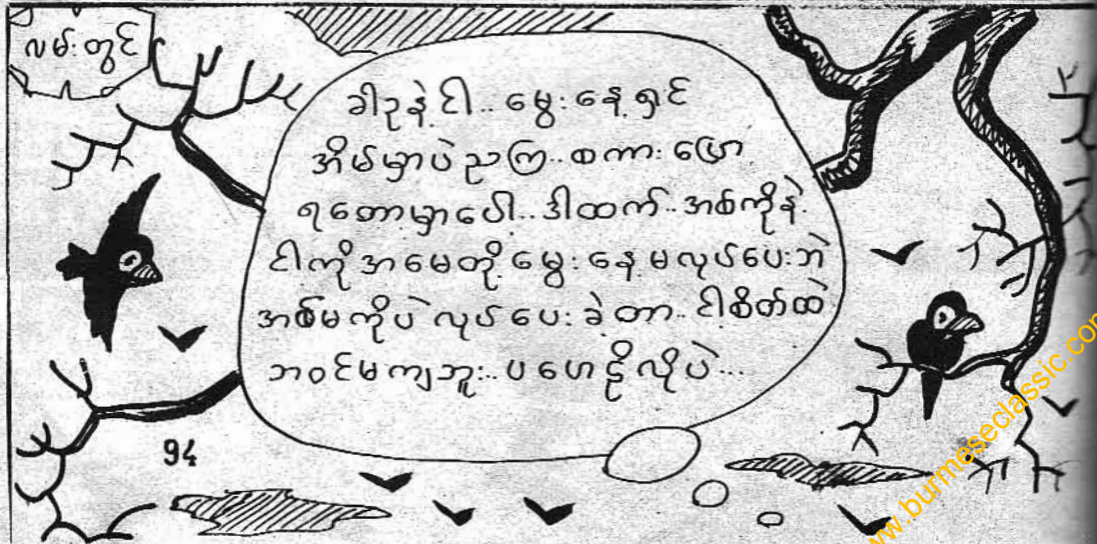 လမ်းတွင်
ခါဥနဲ့ ငါ.. မွေးနေ့ရှင်
အိမ်မှာပဲ ညကြ.. စကားပြော
ရတော့မှာပေါ့.. ဒါထက်.. အစ်ကိုနဲ့
ငါ့ကို အမေတို့ မွေးနေ့ မလုပ်ပေးဘဲ
အစ်မကိုပဲ လုပ်ပေးခဲ့တာ.. ငါ့စိတ်ထဲ
ဘဝင်မကျဘူး.. ပဟေဠိလိုပဲ...
94
www.burmeseclassic.com